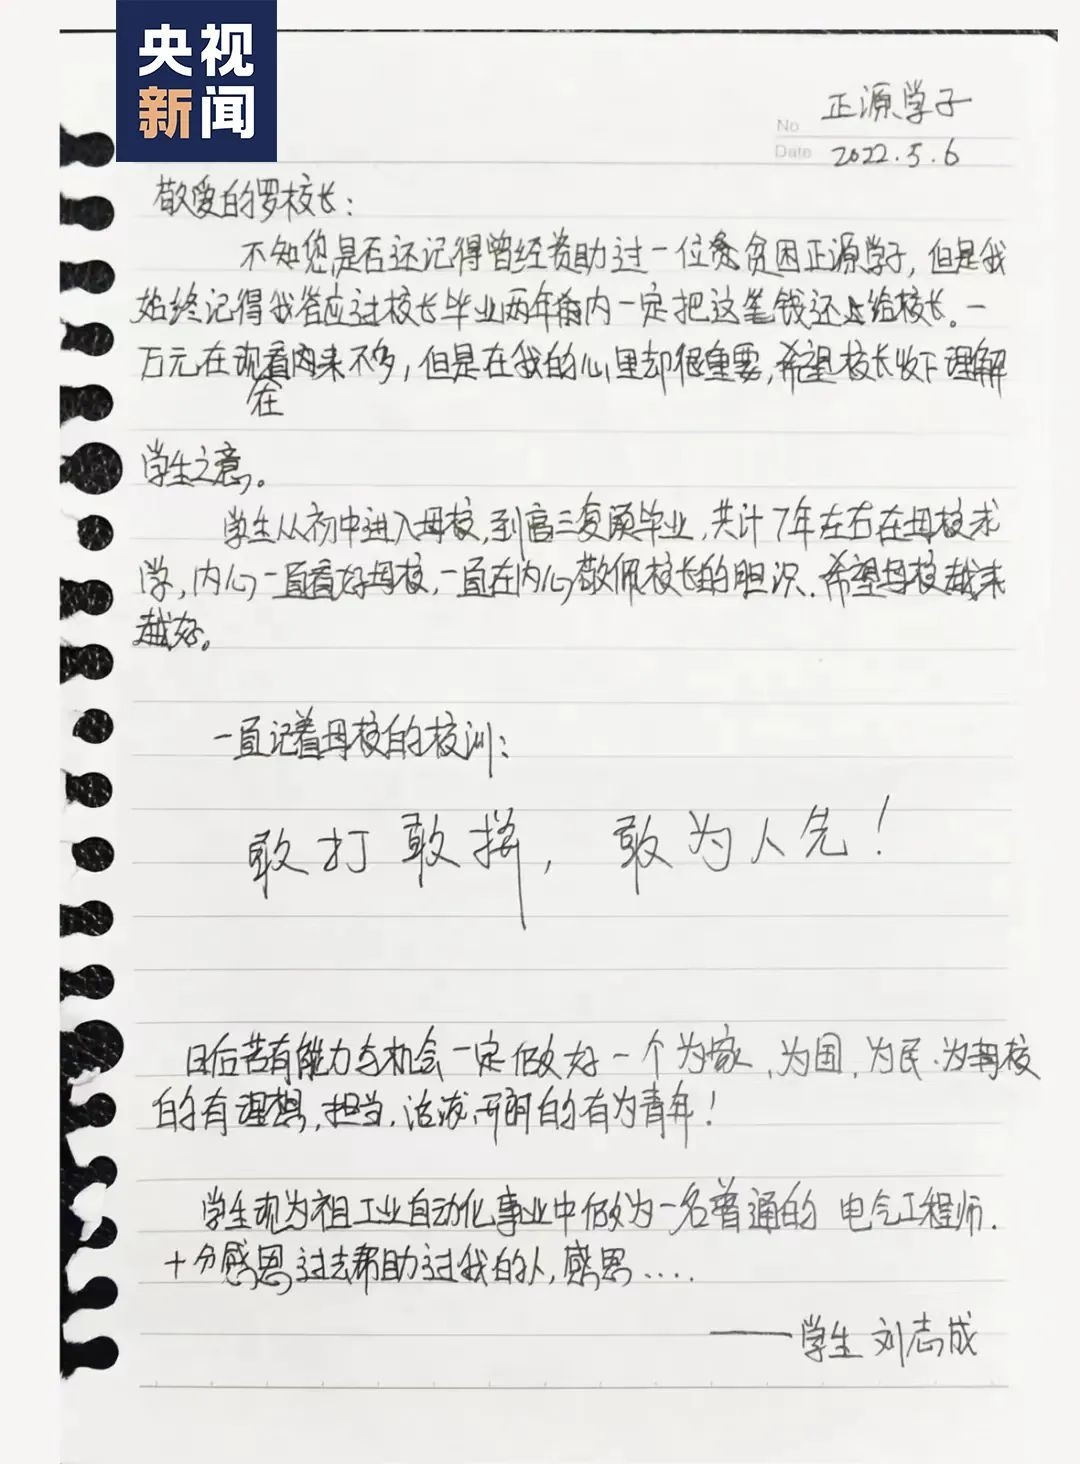 央视
新闻
No 正源学子
Date 2022.5.6
敬爱的罗校长：
不知您是否还记得曾经资助过一位贫困正源学子，但是我
始终记得我答应过校长毕业两年内一定把这笔钱还给校长。一
万元在现在看来不多，但是在我的心里却很重要，希望校长收下理解
学生之意。
学生从初中进入母校，到高三复读毕业，共计7年左右在母校求
学，内心一直看好母校，一直在内心敬佩校长的胆识.希望母校越来
越好。
一直记着母校的校训：
敢打敢拼，敢为人先！
日后若有能力与机会一定做好一个为家、为国、为民.为母校
的有理想，担当，活泼开朗的有为青年！
学生现为祖工业自动化事业中做为一名普通的 电气工程师.
十分感恩过去帮助过我的人，感恩....
——学生 刘志成